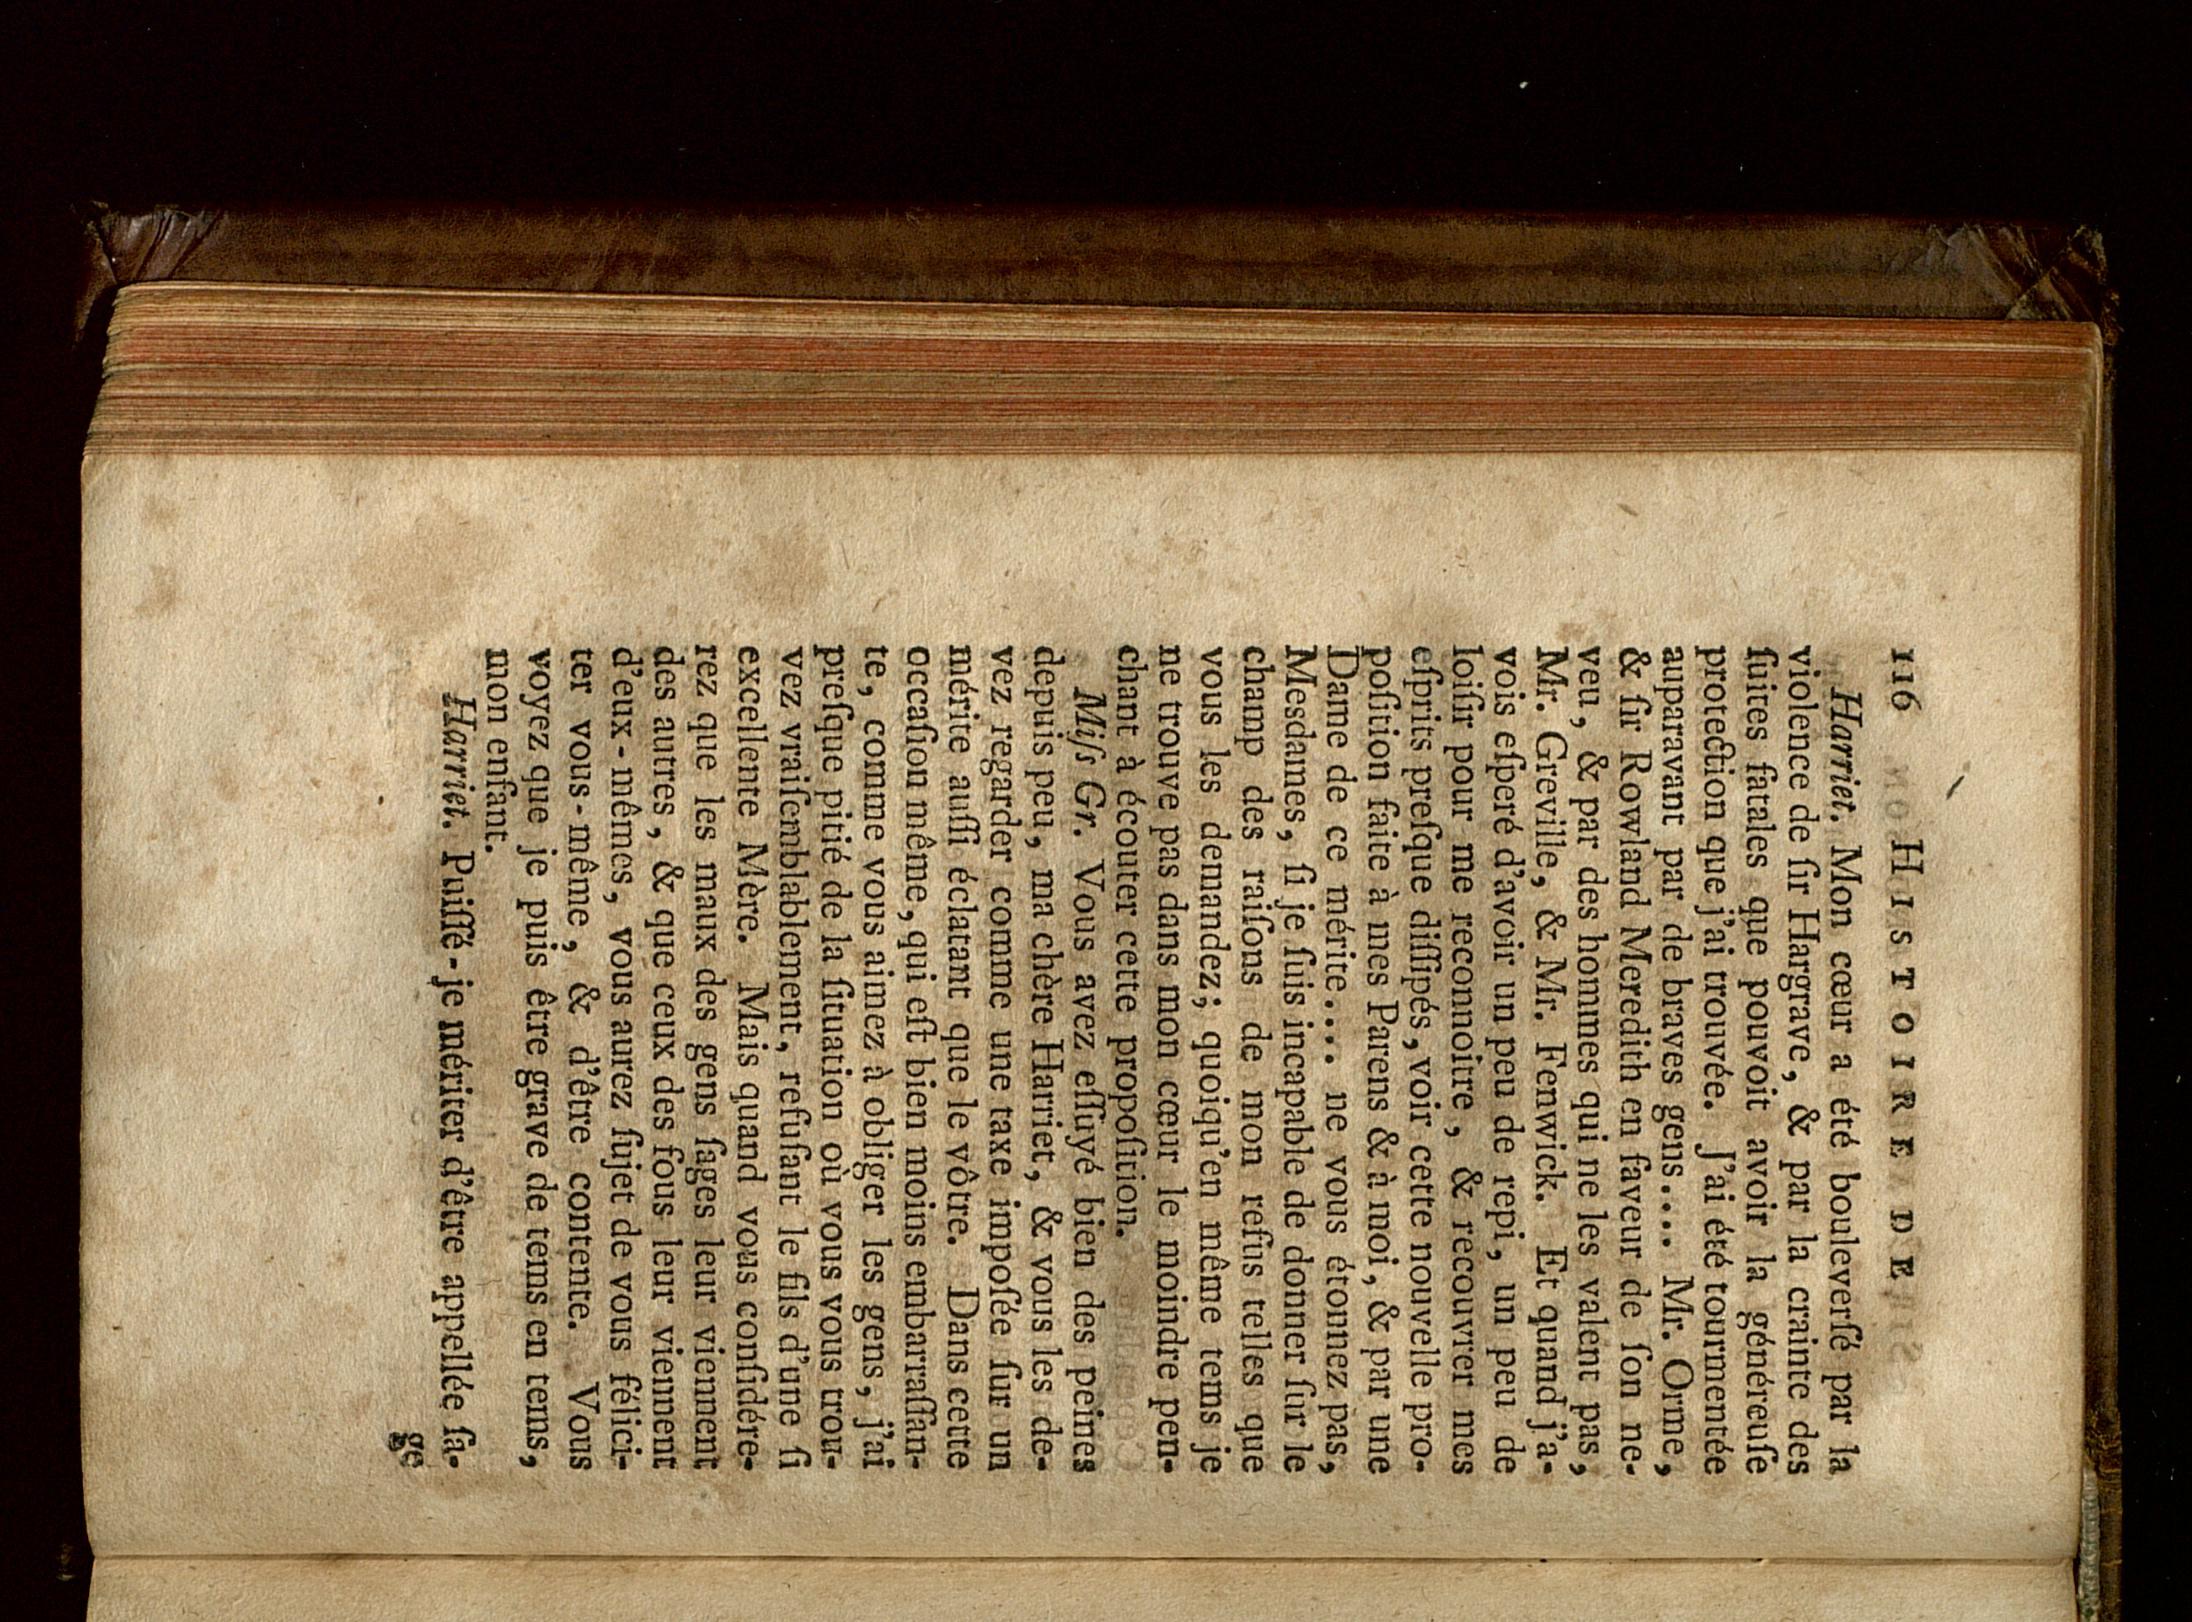 116 HISTOIRE DE
Harriet. Mon cœur a été bouleverſé par la
violence de ſir Hargrave, & par la crainte des
ſuites fatales que pouvoit avoir la généreuſe
protection que j'ai trouvée. J'ai été tourmentée
auparavant par de braves gens.... Mr. Orme,
& ſir Rowland Meredith en faveur de ſon ne-
veu, & par des hommes qui ne les valent pas,
Mr. Greville, & Mr. Fenwick. Et quand j'a-
vois eſperé d'avoir un peu de repi, un peu de
loiſir pour me reconnoitre, & recouvrer mes
eſprits preſque diſſipés, voir cette nouvelle pro-
poſition faite à mes Parens & à moi, & par une
Dame de ce mérite.... ne vous étonnez pas,
Mesdames, ſi je ſuis incapable de donner ſur le
champ des raiſons de mon refus telles que
vous les demandez; quoiqu'en même tems je
ne trouve pas dans mon cœur le moindre pen-
chant à écouter cette propoſition.
Miſs Gr. Vous avez eſſuyé bien des peines
depuis peu, ma chère Harriet, & vous les de-
vez regarder comme une taxe impoſée ſur un
mérite auſſi éclatant que le vôtre. Dans cette
occaſion même, qui eſt bien moins embarraſſan-
te, comme vous aimez à obliger les gens, j'ai
preſque pitié de la ſituation où vous vous trou-
vez vraiſemblablement, refuſant le fils d'une ſi
excellente Mère. Mais quand vous conſidére-
rez que les maux des gens ſages leur viennent
des autres, & que ceux des fous leur viennent
d'eux-mêmes, vous aurez ſujet de vous félici-
ter vous-même, & d'être contente. Vous
voyez que je puis être grave de tems en tems,
mon enfant.
Harriet. Puiſſé-je mériter d'être appellée ſa-
ge